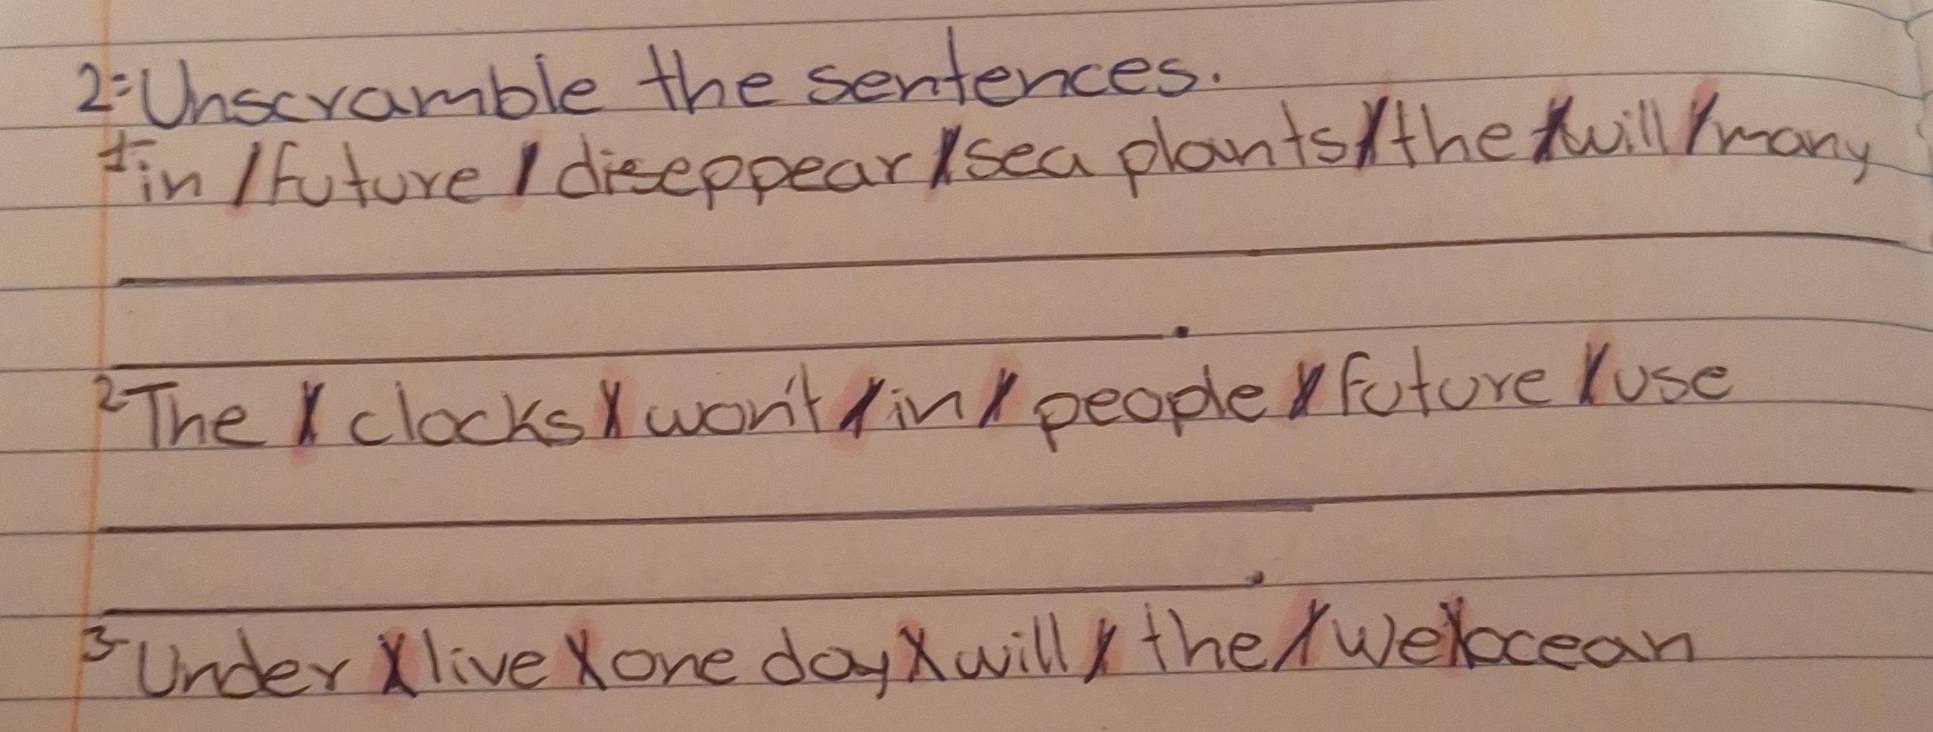 2=Unscramble the sentences.
1-in / future / diseppear / sea plants / the / will / many
2-The / clocks / won't / in / people / future / use
3-Under / live / one day / will / the / we / ocean